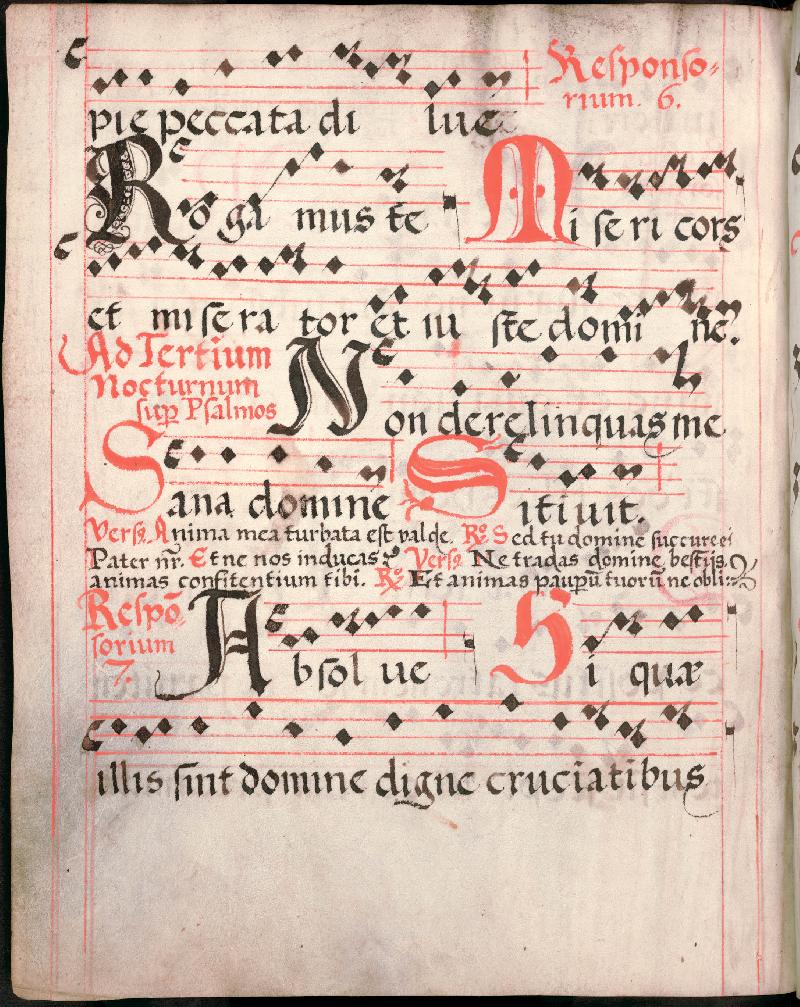 pie peccata di lue
Responso-
rium. 6.
Ro ga mus te Mi se ri cors
et mi se ra tor et iu ste domi ne.
Ad Tertium
Nocturnum
sup Psalmos
Non derelinquas me
Sana domine Sitiuit.
Vers. Anima mea turbata est valde. R. Sed tu domine succurre ei
Pater nr. Et ne nos inducas Vers. Ne tradas domine bestijs
animas confitentium tibi. R. Et animas paupū tuorū ne obli:
Respō
sorium
7.
Absol ue Si quæ
illis sint domine digne cruciatibus